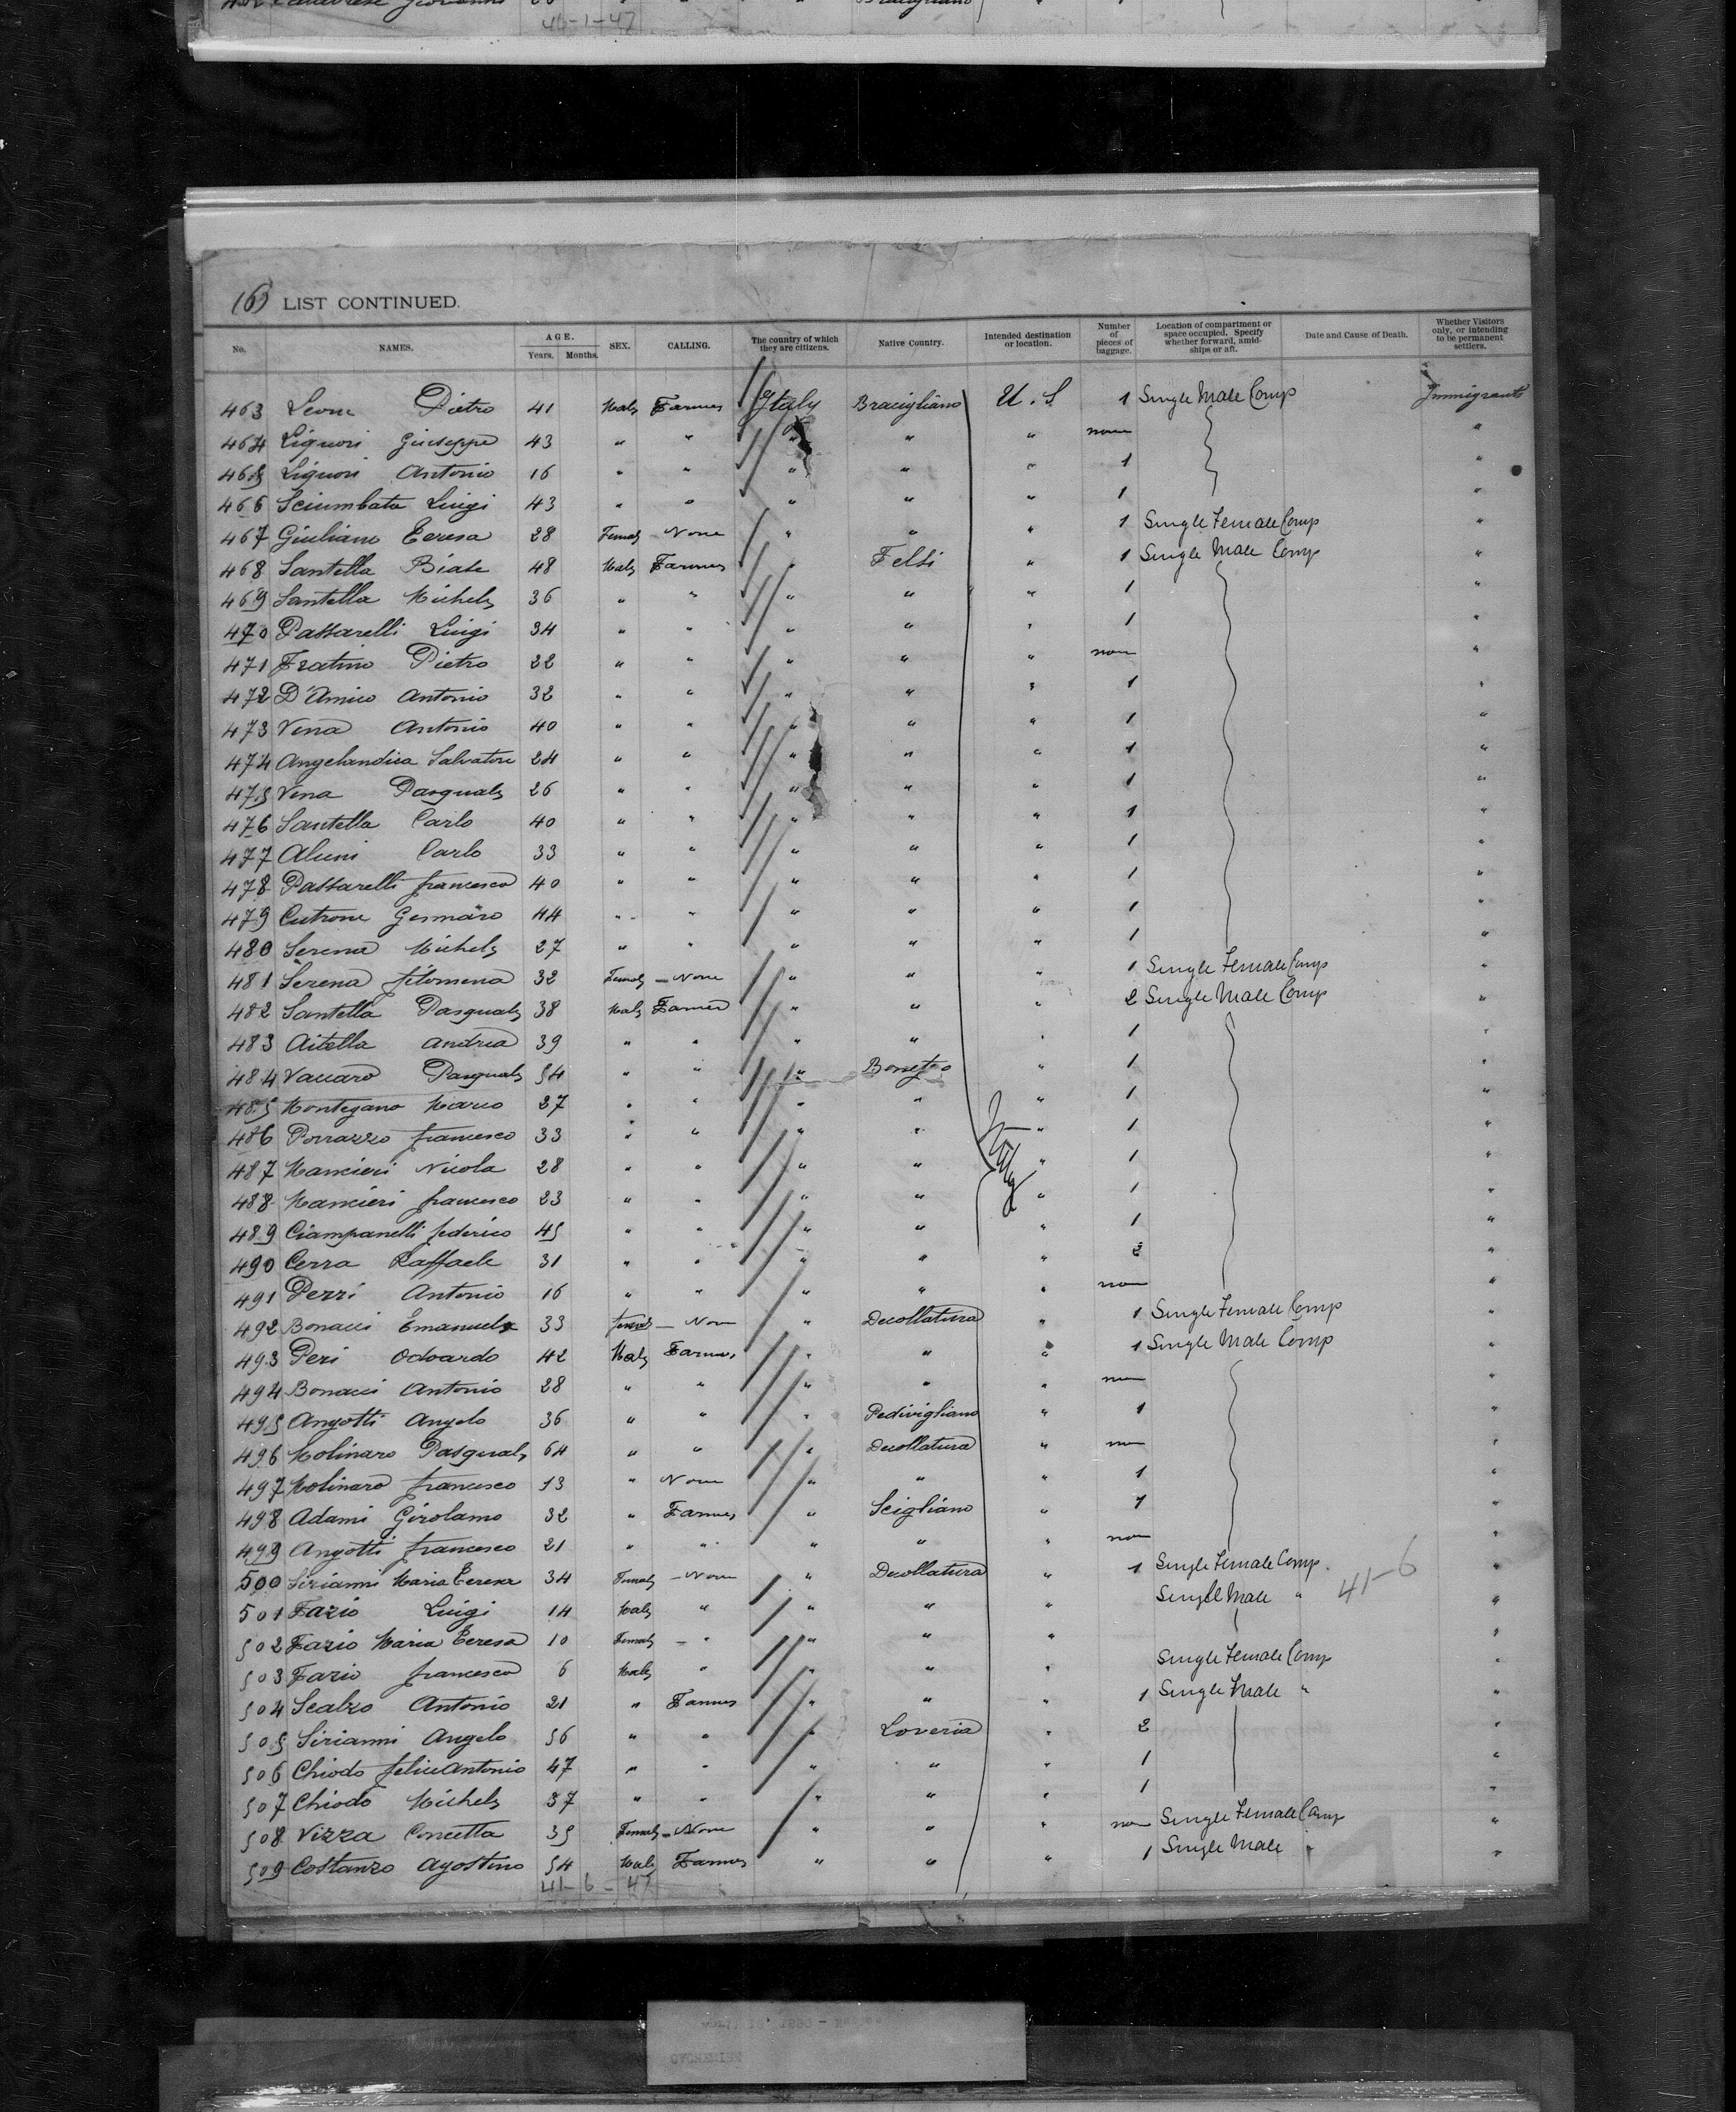 46-1-47
(6) LIST CONTINUED.
No. NAMES. AGE. Years. Months. SEX. CALLING. The country of which they are citizens. Native Country. Intended destination or location. Number of pieces of baggage. Location of compartment or space occupied. Specify whether forward, amidships or aft. Date and Cause of Death. Whether Visitors only, or intending to be permanent settlers.
463 Leone Pietro 41 Male Farmer Italy Bracigliano U.S 1 Single Male Comp Immigrants
464 Liguori Giuseppe 43 " " " " " none "
465 Liguori Antonio 16 " " " " " 1 "
466 Sciumbata Luigi 43 " " " " " 1 "
467 Giuliano Teresa 28 Female None " " " 1 Single Female Comp "
468 Santella Biase 48 Male Farmer " Felsi " 1 Single Male Comp "
469 Santella Michele 36 " " " " " 1 "
470 Passarelli Luigi 34 " " " " " 1 "
471 Fratino Pietro 22 " " " " " none "
472 D'Amico Antonio 32 " " " " " 1 "
473 Vena Antonio 40 " " " " " 1 "
474 Salvatore 24 " " " " " 1 "
475 Vena Pasquale 26 " " " " " 1 "
476 Santella Carlo 40 " " " " " 1 "
477 Aluni Carlo 33 " " " " " 1 "
478 Passarelli francesco 40 " " " " " 1 "
479 Cutrone Gennaro 44 " " " " " 1 "
480 Serena Michele 27 " " " " " 1 "
481 Serena filomena 32 Female - None " " " 1 Single Female Comp "
482 Santella Pasquale 38 Male Farmer " " " 2 Single Male Comp "
483 Aitella Andrea 39 " " " " " 1 "
484 Vaccaro Pasquale 54 " " " " 1 "
485 Montegano Marco 27 " " " " " 1 "
486 Porrazzo francesco 33 " " " " " 1 "
487 Mancieri Nicola 28 " " " " " 1 "
488 Mancieri francesco 23 " " " " " 1 "
489 Ciampanelli federico 45 " " " " " 1 "
490 Cerra Raffaele 31 " " " " " 2 "
491 Perri Antonio 16 " " " " " none "
492 Bonacci Emanuela 33 female - None " Decollatura " 1 Single Female Comp "
493 Peri Odoardo 42 Male Farmer " " " 1 Single Male Comp "
494 Bonacci Antonio 28 " " " " " none "
495 Angotti Angelo 36 " " " Pedivigliano " 1 "
496 Molinaro Pasquale 64 " " " Decollatura " none "
497 Molinaro francesco 13 " None " " " 1 "
498 Adami Girolamo 32 " Farmer " Scigliano " 1 "
499 Angotti francesco 21 " " " " " none "
500 Sirianni Maria Teresa 34 Female - None " Decollatura " 1 Single Female Comp "
501 Fazio Luigi 14 Male " " " " Single Male " 41-6 "
502 Fazio Maria Teresa 10 Female - " " " " "
503 Fazio francesco 6 Male " " " " Single Female Comp "
504 Scalzo Antonio 21 " Farmer " " " 1 Single Male " "
505 Sirianni Angelo 56 " " " Loveria " 2 "
506 Chiodo feliceantonio 47 " " " " " 1 "
507 Chiodo Michele 37 " " " " " 1 "
508 Vizza Concetta 35 Female - None " " " none Single Female Comp "
509 Costanzo Agostino 54 Male Farmer " " " 1 Single Male " "
41-6-47